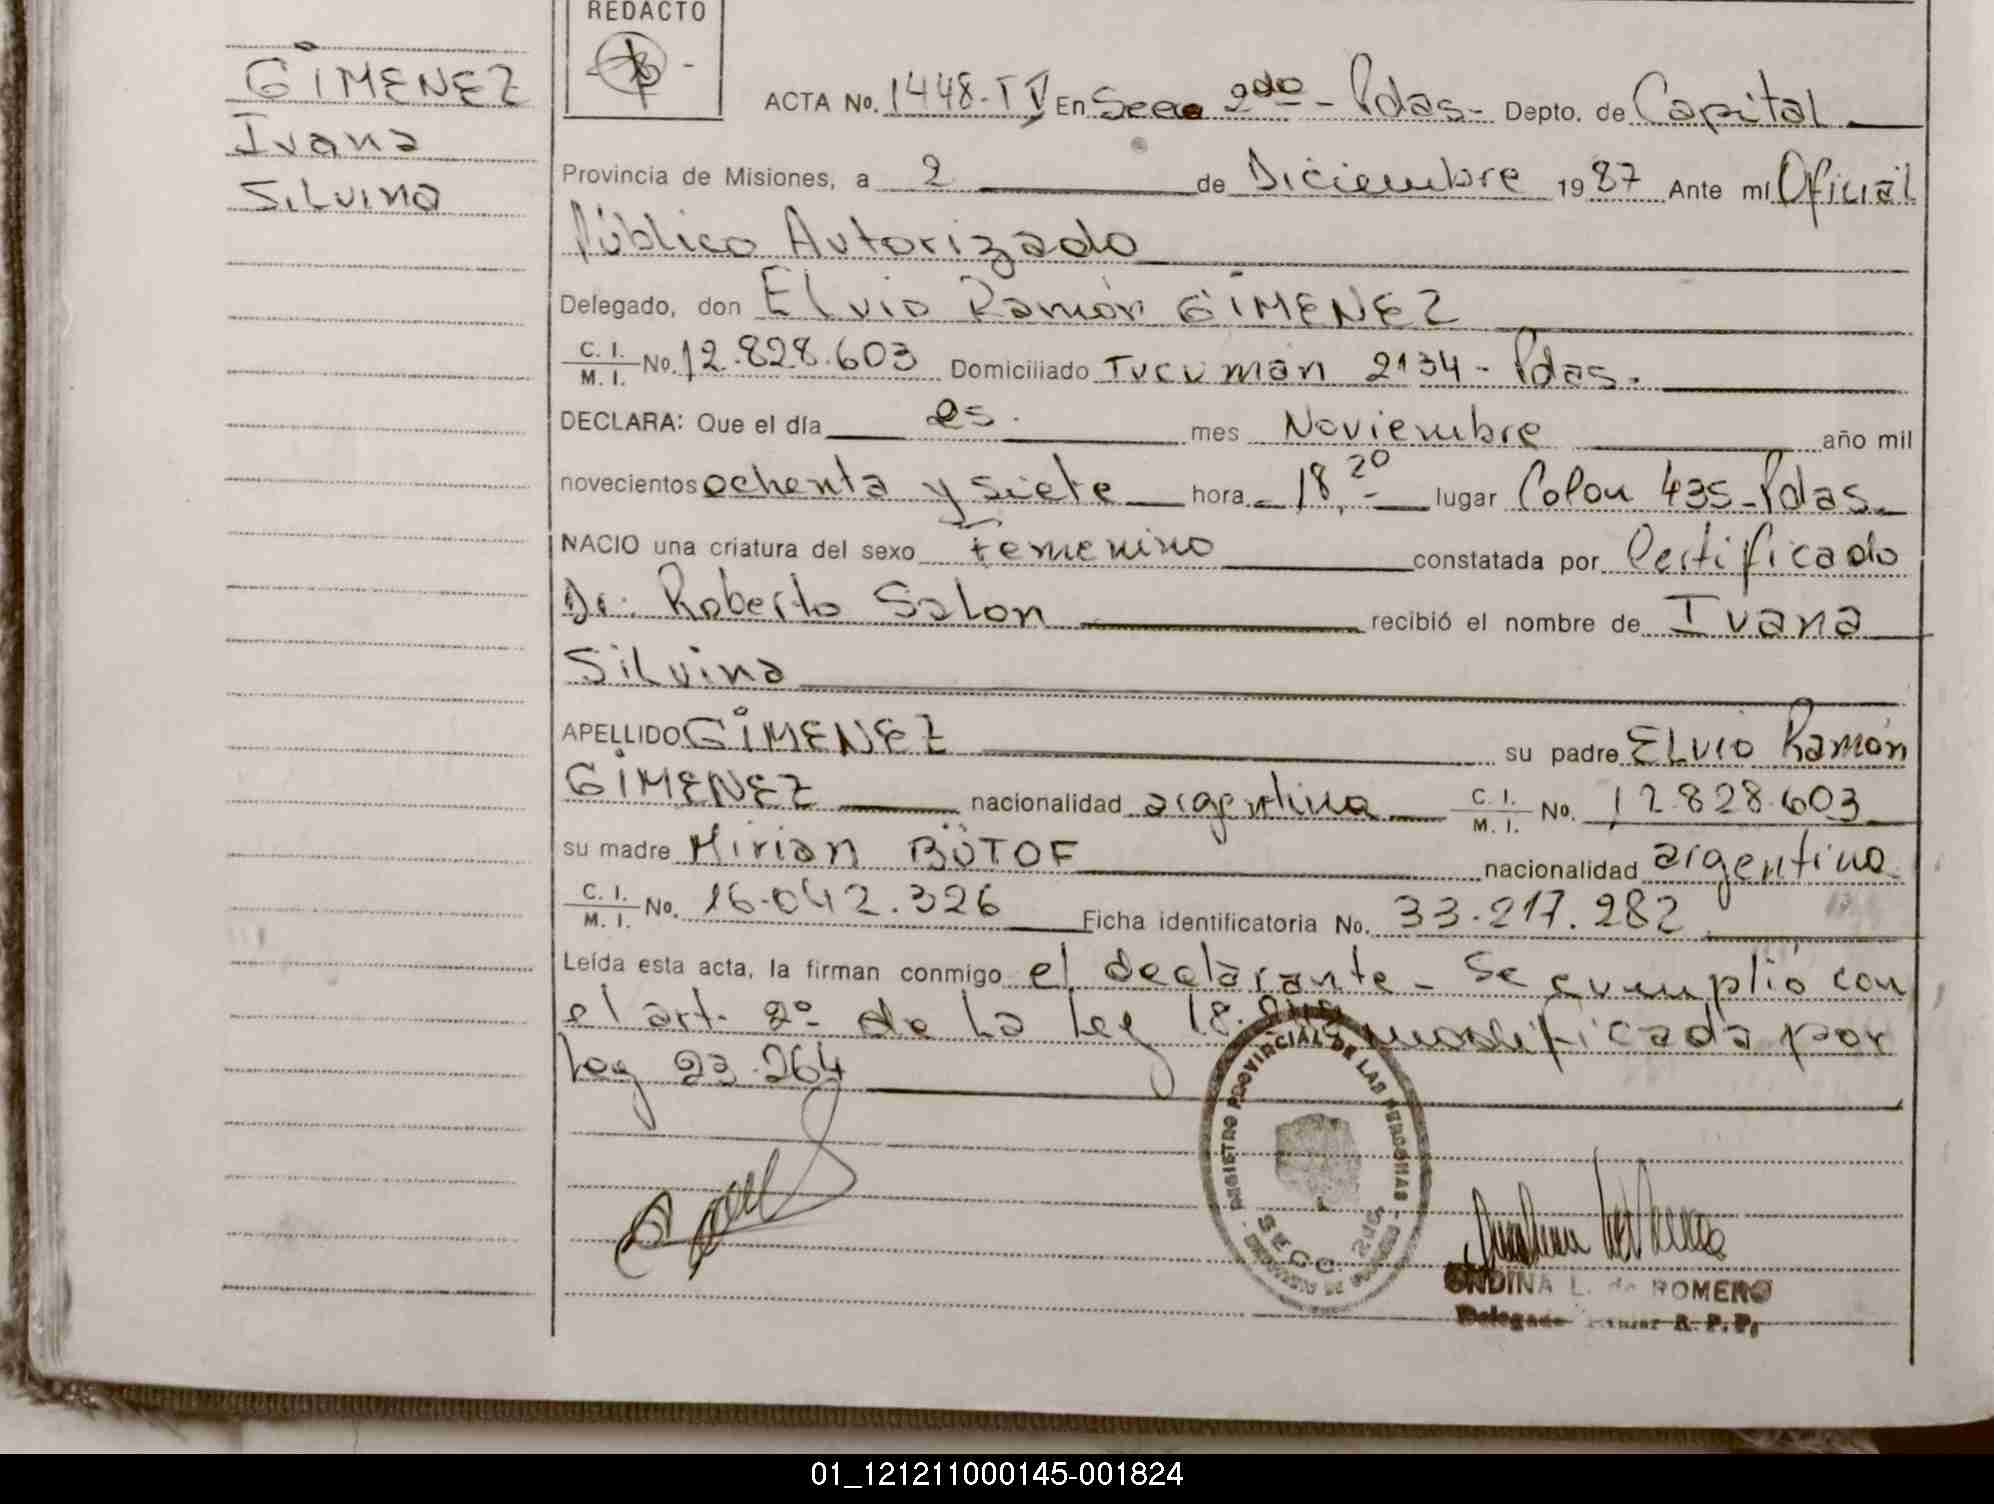 GIMENEZ
Ivana
Silvina
REDACTO
ACTA No. 1448-IV En Secc 2do - Pdas - Depto. de Capital
Provincia de Misiones, a 2 de Diciembre 1987 Ante mí Oficial
Público Autorizado
Delegado, don Elvio Ramón GIMENEZ
C. I. M. I. No. 12.828.603 Domiciliado Tucumán 2134 - Pdas.
DECLARA: Que el día 25. mes Noviembre año mil
novecientos ochenta y siete hora 18,20 lugar Colon 435 - Pdas.
NACIO una criatura del sexo Femenino constatada por Certificado
Dr. Roberto Salon recibió el nombre de Ivana
Silvina
APELLIDO GIMENEZ su padre Elvio Ramón
GIMENEZ nacionalidad argentina C. I. M. I. No. 12.828.603
su madre Mirian BÜTOF nacionalidad argentina
C. I. M. I. No. 16.042.326 Ficha identificatoria No. 33.217.282
Leída esta acta, la firman conmigo el declarante - Se cumplió con
el art. 2º de la Ley modificada por
Ley 23.264
REGISTRO PROVINCIAL DE LAS PERSONAS
SECC. 2da
ONDINA L. de ROMERO
Delegado Titular R. P. P.
01_121211000145-001824